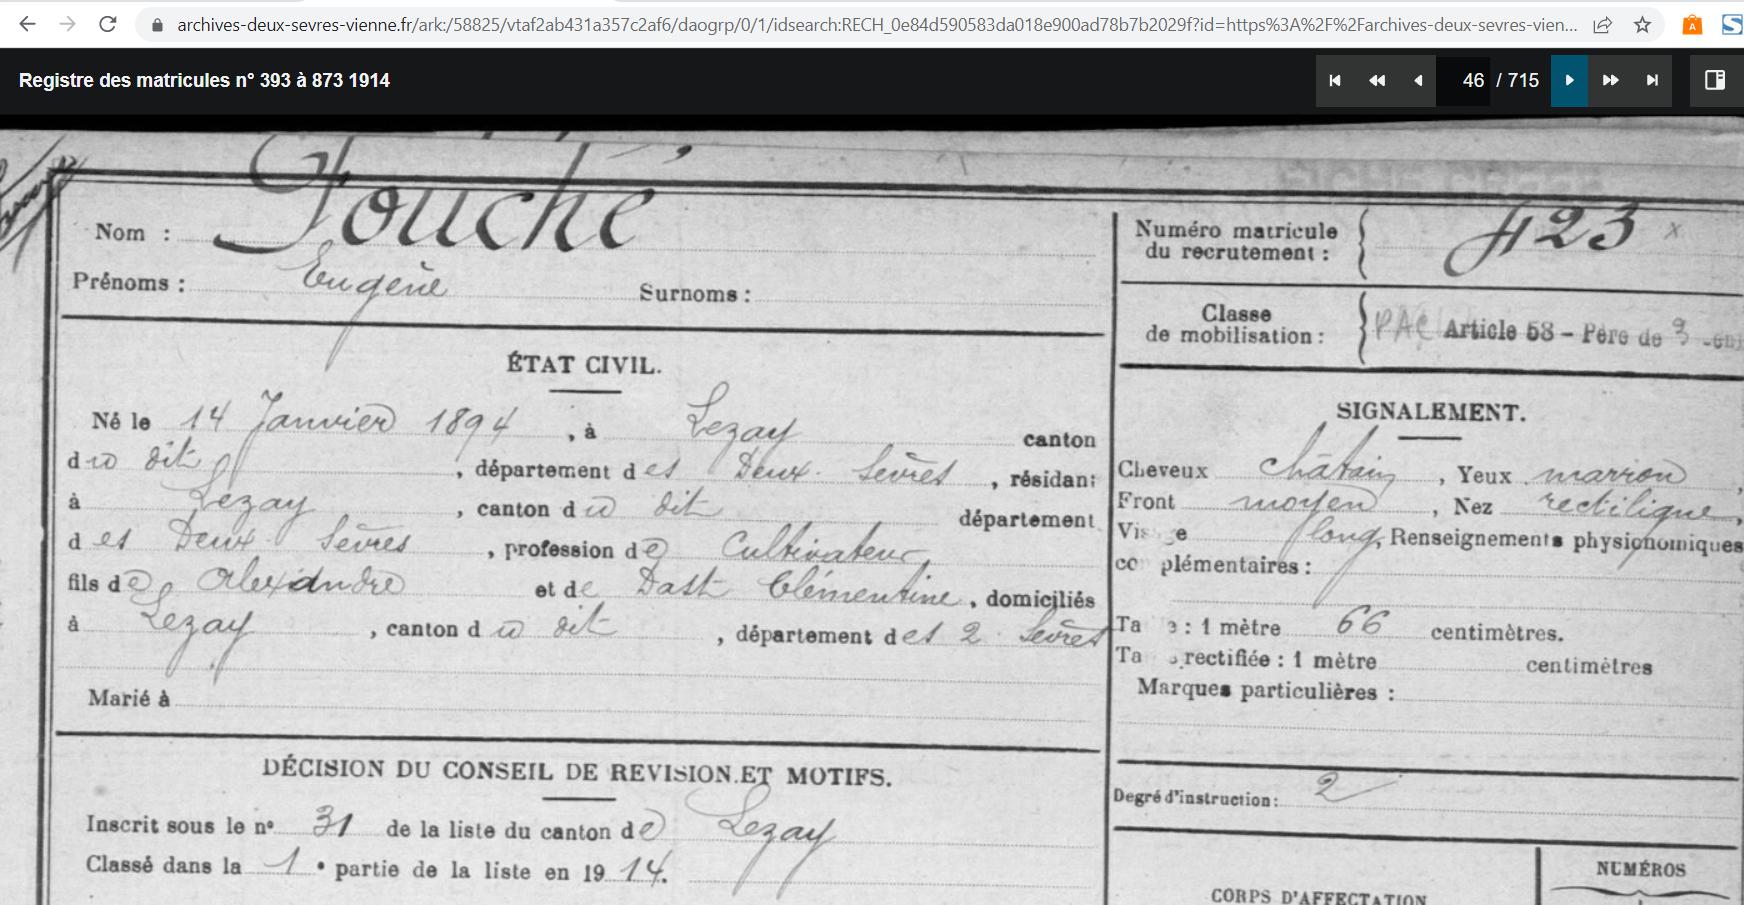 archives-deux-sevres-vienne.fr/ark:/58825/vtaf2ab431a357c2af6/daogrp/0/1/idsearch:RECH_0e84d590583da018e900ad78b7b2029f?id=https%3A%2F%2Farchives-deux-sevres-vien...
Registre des matricules n° 393 à 873 1914
46 / 715
Nom : Fouché
Prénoms : Eugène Surnoms :
Numéro matricule
du recrutement : 423 x
Classe
de mobilisation : Article 58 - Père de 3
ÉTAT CIVIL.
Né le 14 Janvier 1894, à Lezay canton
du dit, département des Deux Sèvres, résidant
à Lezay, canton du dit département
des Deux Sèvres, profession de Cultivateur
fils de Alexandre et de Dast Clémentine, domiciliés
à Lezay, canton du dit, département des 2 Sèvres
Marié à
SIGNALEMENT.
Cheveux châtain, Yeux marron,
Front moyen, Nez rectiligne,
Vis ge long, Renseignements physionomiques
co plémentaires :
Ta e : 1 mètre 66 centimètres.
Ta rectifiée : 1 mètre centimètres
Marques particulières :
Degré d'instruction : 2
DÉCISION DU CONSEIL DE REVISION ET MOTIFS.
Inscrit sous le n° 31 de la liste du canton de Lezay
Classé dans la 1e partie de la liste en 1914.
CORPS D'AFFECTATION
NUMÉROS